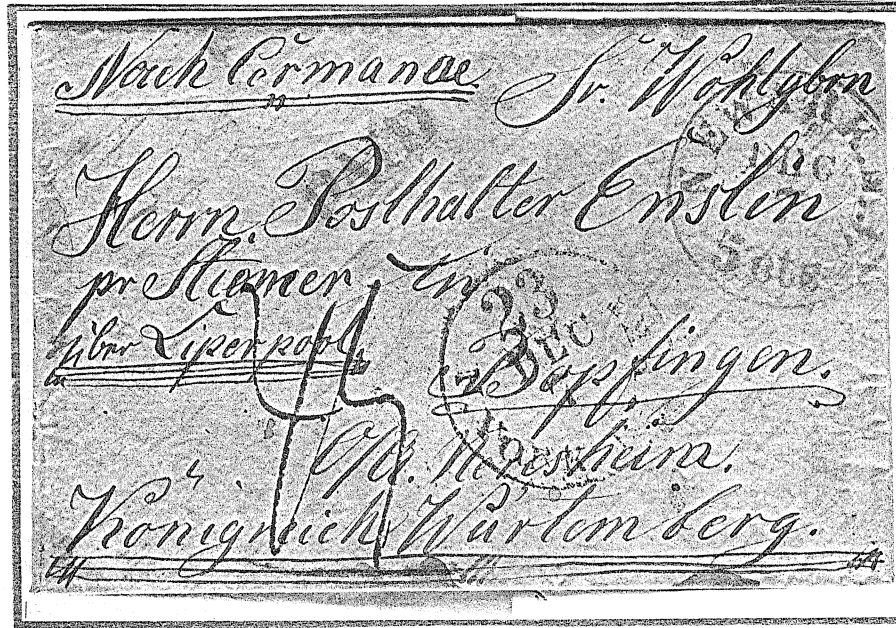 Nach Cermanae Sr. Wohlgbrn
Herrn Posthalter Enslin
pr Stiemer in
über Liperpool, Bopfingen.
O/A. Neresheim.
Königreich Würtemberg.
NEW YORK
DEC
5 cts
23
DEC
45